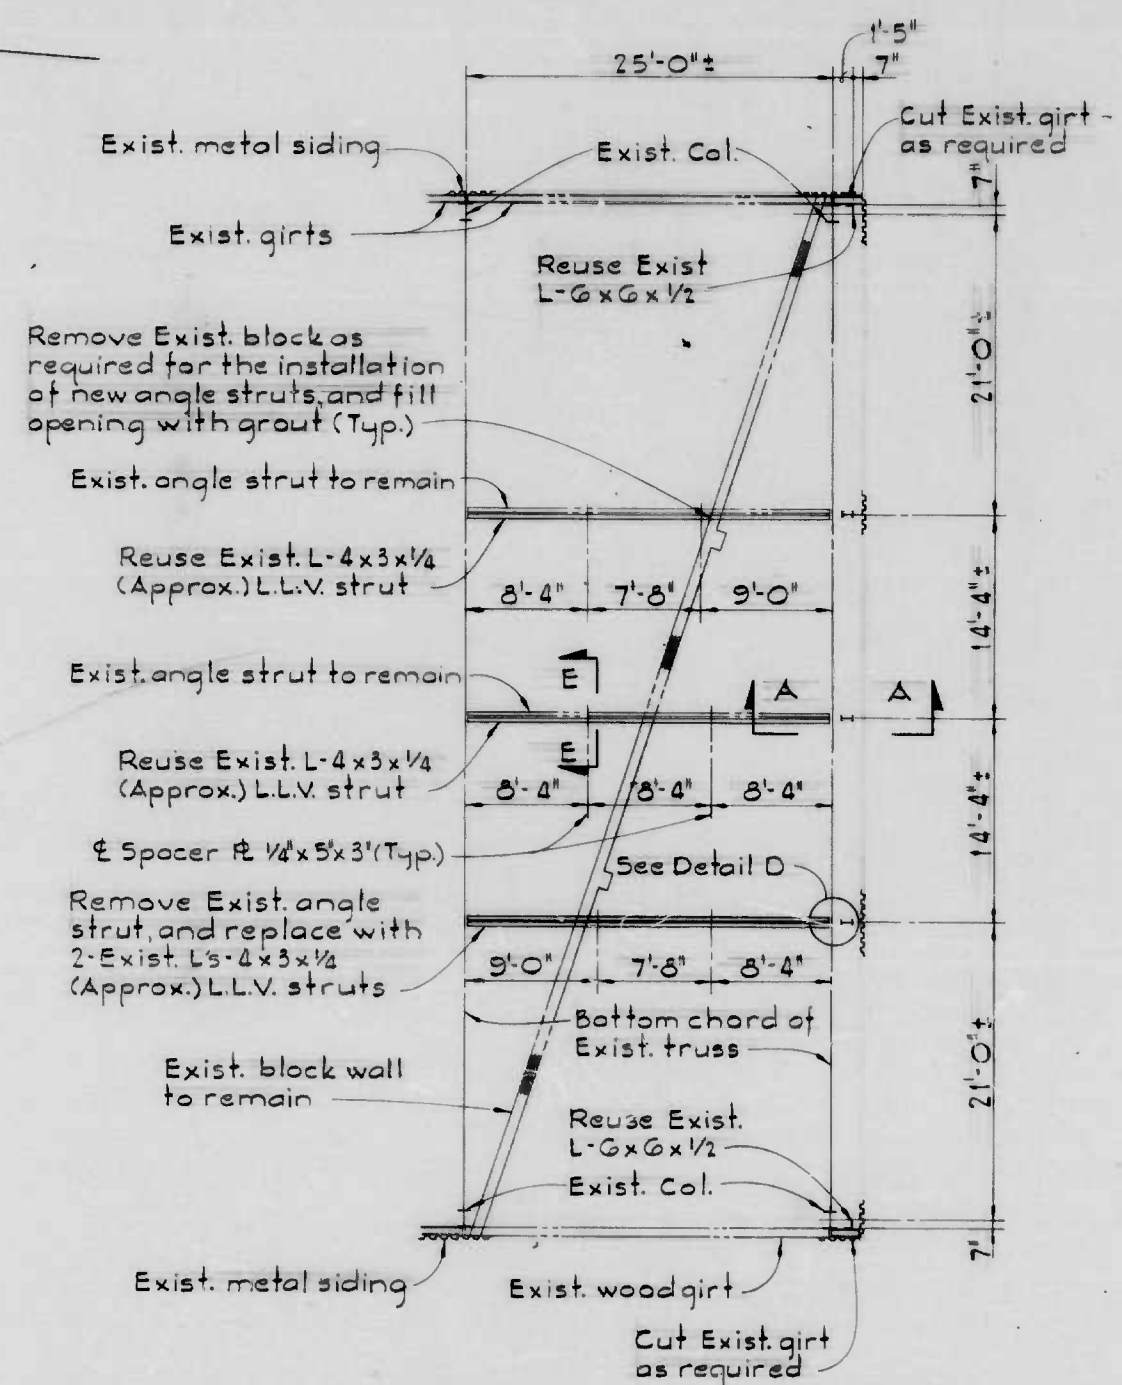 1'-5"
25'-0"±
7"
Cut Exist. girt -
as required
Exist. metal siding
Exist. Col.
7"
Exist. girts
Reuse Exist
L-6x6x1/2
21'-0"±
Remove Exist. block as
required for the installation
of new angle struts, and fill
opening with grout (Typ.)
Exist. angle strut to remain
Reuse Exist. L-4x3x1/4
(Approx.) L.L.V. strut
8'-4"
7'-8"
9'-0"
14'-4"±
Exist. angle strut to remain
E
A
A
Reuse Exist. L-4x3x1/4
(Approx.) L.L.V. strut
E
8'-4"
8'-4"
8'-4"
14'-4"±
℄ Spacer PL 1/4"x5"x3" (Typ.)
See Detail D
Remove Exist. angle
strut, and replace with
2-Exist. L's-4x3x1/4
(Approx.) L.L.V. struts
9'-0"
7'-8"
8'-4"
Bottom chord of
Exist. truss
Exist. block wall
to remain
21'-0"±
Reuse Exist.
L-6x6x1/2
Exist. Col.
7"
Exist. metal siding
Exist. wood girt
Cut Exist. girt
as required